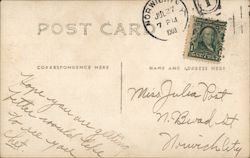 NORWICH
JUL 27
7 PM
POST CARD
CORRESPONDENCE HERE
NAME AND ADDRESS HERE
Hope you are getting
better would like
to see you
Chet.
Miss Julia Post
N. Broad St
Norwich